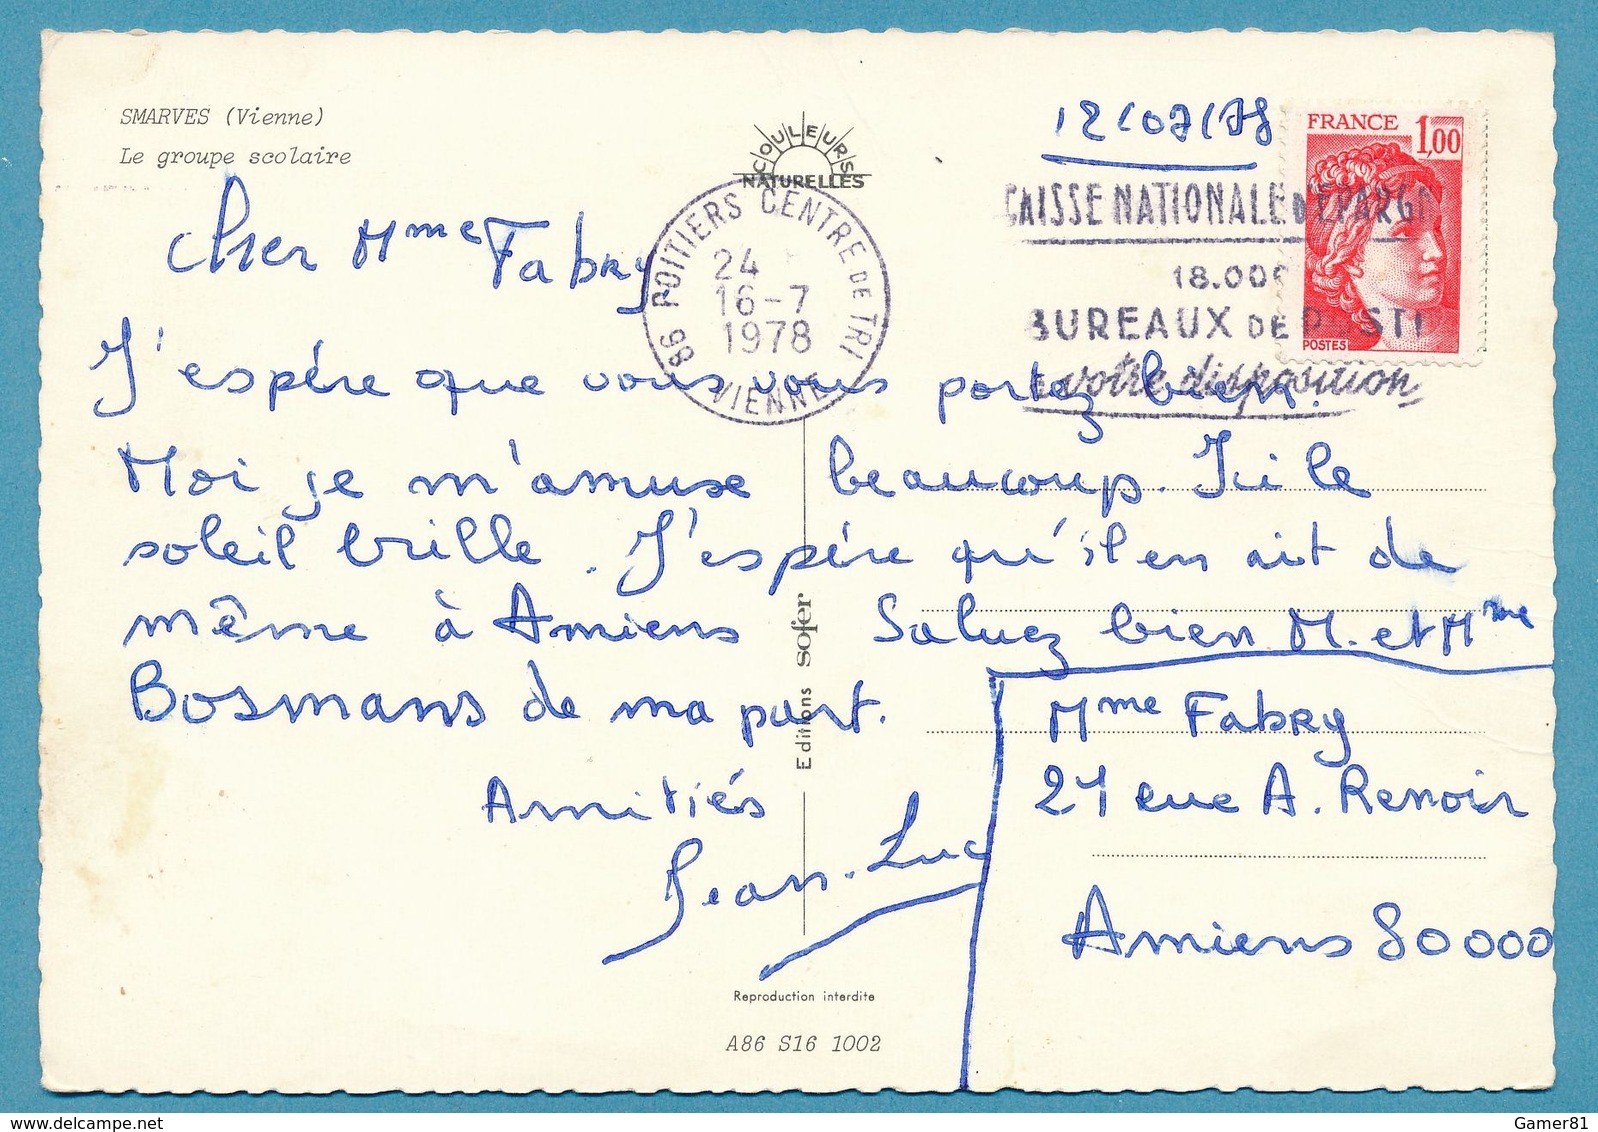 SMARVES (Vienne)
Le groupe scolaire
COULEURS
NATURELLES
12/07/78
FRANCE 1,00
POSTES
CAISSE NATIONALE D'EPARG
18.000
BUREAUX DE POSTE
à votre disposition
86 POITIERS CENTRE DE TRI
24
16-7
1978
VIENNE
Cher Mme Fabry
J'espère que vous vous portez bien.
Moi je m'amuse beaucoup. Ici le
soleil brille. J'espère qu'il en ait de
même à Amiens Saluez bien M. et Mme
Bosmans de ma part.
Amitiés
Jean-Luc
Editions sofer
Mme Fabry
21 rue A. Renoir
Amiens 80000
Reproduction interdite
A86 S16 1002
www.delcampe.net
Gamer81